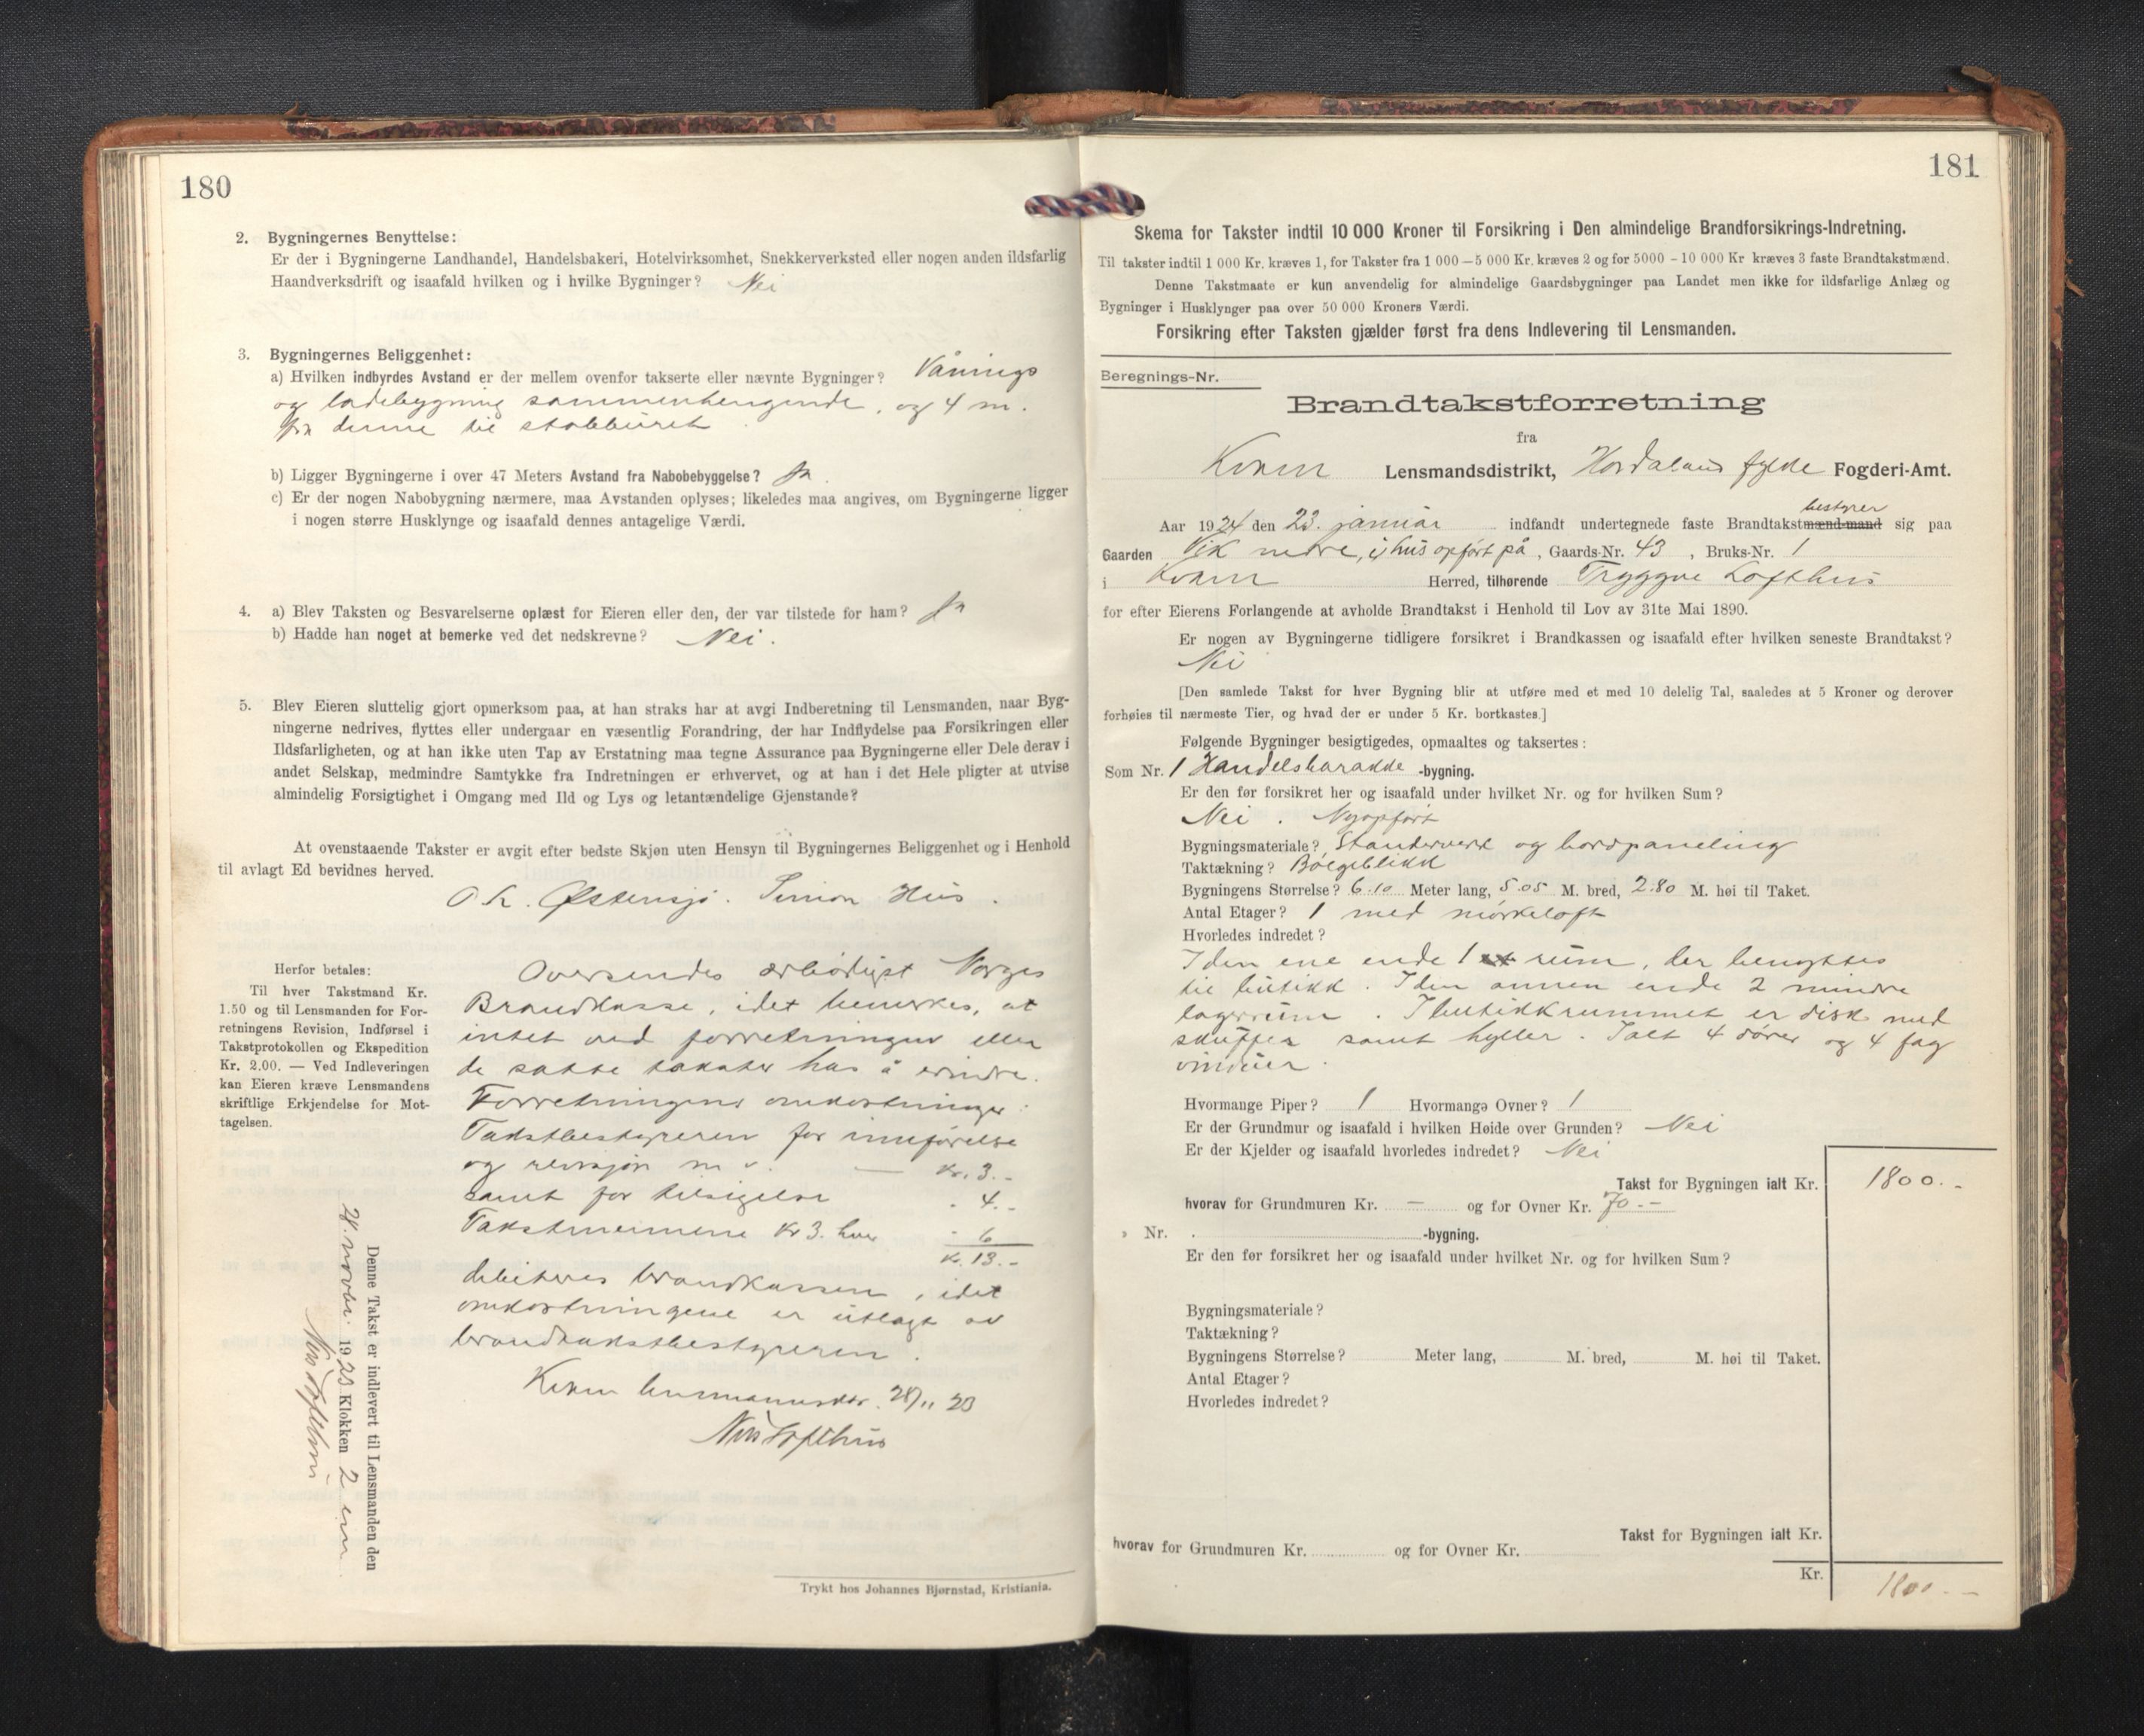 180
2. Bygningernes Benyttelse:
Er der i Bygningerne Landhandel, Handelsbakeri, Hotelvirksomhet, Snekkerverksted eller nogen anden ildsfarlig
Haandverksdrift og isaafald hvilken og i hvilke Bygninger? Nei
3. Bygningernes Beliggenhet:
a) Hvilken indbyrdes Avstand er der mellem ovenfor takserte eller nævnte Bygninger? Vånings
og ladebygning sammenhengende, og 4 m.
fra denne til stabburet
b) Ligger Bygningerne i over 47 Meters Avstand fra Nabobebyggelse? Ja.
c) Er der nogen Nabobygning nærmere, maa Avstanden oplyses; likeledes maa angives, om Bygningerne ligger
i nogen større Husklynge og isaafald dennes antagelige Værdi.
4. a) Blev Taksten og Besvarelserne oplæst for Eieren eller den, der var tilstede for ham? Ja
b) Hadde han noget at bemerke ved det nedskrevne? Nei.
5. Blev Eieren sluttelig gjort opmerksom paa, at han straks har at avgi Indberetning til Lensmanden, naar Byg-
ningerne nedrives, flyttes eller undergaar en væsentlig Forandring, der har Indflydelse paa Forsikringen eller
Ildsfarligheten, og at han ikke uten Tap av Erstatning maa tegne Assurance paa Bygningerne eller Dele derav i
andet Selskap, medmindre Samtykke fra Indretningen er erhvervet, og at han i det Hele pligter at utvise
almindelig Forsigtighet i Omgang med Ild og Lys og letantændelige Gjenstande?
At ovenstaaende Takster er avgit efter bedste Skjøn uten Hensyn til Bygningernes Beliggenhet og i Henhold
til avlagt Ed bevidnes herved.
O. K. Østensjø. Simon Hus.
Herfor betales:
Til hver Takstmand Kr.
1.50 og til Lensmanden for For-
retningens Revision, Indførsel i
Takstprotokollen og Ekspedition
Kr. 2.00. — Ved Indleveringen
kan Eieren kræve Lensmandens
skriftlige Erkjendelse for Mot-
tagelsen.
Oversendes ærbødigst Norges
Brandkasse, idet bemerkes, at
intet ved forretningen eller
de satte takster has å erindre.
Forretningens omkostninger:
Takstbestyreren for innførelse
og revisjon m v. — Kr. 3.-
samt for tilsigelse - 4.-
Takstmennene Kr 3. hver - 6
Kr. 13.-
debiteres brandkassen, idet
omkostningene er utlagt av
brandtakstbestyreren.
Kvam lensmannsktr. 28/11 23
Nils Lofthus
Denne Takst er indlevert til Lensmanden den
28. novbr. 1923 Klokken 2 em
Nils Lofthus
Trykt hos Johannes Bjørnstad, Kristiania.
181
Skema for Takster indtil 10 000 Kroner til Forsikring i Den almindelige Brandforsikrings-Indretning.
Til takster indtil 1 000 Kr. kræves 1, for Takster fra 1 000 — 5 000 Kr. kræves 2 og for 5000 - 10 000 Kr kræves 3 faste Brandtakstmænd.
Denne Takstmaate er kun anvendelig for almindelige Gaardsbygninger paa Landet men ikke for ildsfarlige Anlæg og
Bygninger i Husklynger paa over 50 000 Kroners Værdi.
Forsikring efter Taksten gjælder først fra dens Indlevering til Lensmanden.
Beregnings-Nr.
Brandtakstforretning
fra
Kvam Lensmandsdistrikt, Hordaland fylke Fogderi-Amt.
bestyrer
Aar 1924 den 23. januar indfandt undertegnede faste Brandtakstmænd-mand sig paa
Gaarden Vik nedre, i hus opført på, Gaards-Nr. 43, Bruks-Nr. 1
i Kvam Herred, tilhørende Tryggve Lofthus
for efter Eierens Forlangende at avholde Brandtakst i Henhold til Lov av 31te Mai 1890.
Er nogen av Bygningerne tidligere forsikret i Brandkassen og isaafald efter hvilken seneste Brandtakst?
Nei
[Den samlede Takst for hver Bygning blir at utføre med et med 10 delelig Tal, saaledes at 5 Kroner og derover
forhøies til nærmeste Tier, og hvad der er under 5 Kr. bortkastes.]
Følgende Bygninger besigtigedes, opmaaltes og taksertes:
Som Nr. 1 Handelsbarakke -bygning.
Er den før forsikret her og isaafald under hvilket Nr. og for hvilken Sum?
Nei. Nyopført
Bygningsmateriale? Stenderverk og bordpaneling
Taktækning? Bølgeblikk
Bygningens Størrelse? 6.10 Meter lang, 5.05 M. bred, 2.80 M. høi til Taket.
Antal Etager? 1 med mørkeloft
Hvorledes indredet?
I den ene ende 1 rum, der benyttes
til butikk. I den annen ende 2 mindre
lagerrum. I butikkrummet er disk med
skuffer samt hyller. Ialt 4 dører og 4 fag
vinduer.
Hvormange Piper? 1 Hvormange Ovner? 1
Er der Grundmur og isaafald i hvilken Høide over Grunden? Nei
Er der Kjelder og isaafald hvorledes indredet? Nei
Takst for Bygningen ialt Kr. 1800.-
hvorav for Grundmuren Kr. — og for Ovner Kr. 70.-
» Nr. -bygning.
Er den før forsikret her og isaafald under hvilket Nr. og for hvilken Sum?
Bygningsmateriale?
Taktækning?
Bygningens Størrelse? Meter lang, M. bred, M. høi til Taket.
Antal Etager?
Hvorledes indredet?
Takst for Bygningen ialt Kr.
hvorav for Grundmuren Kr. og for Ovner Kr.
Kr. 1800.-